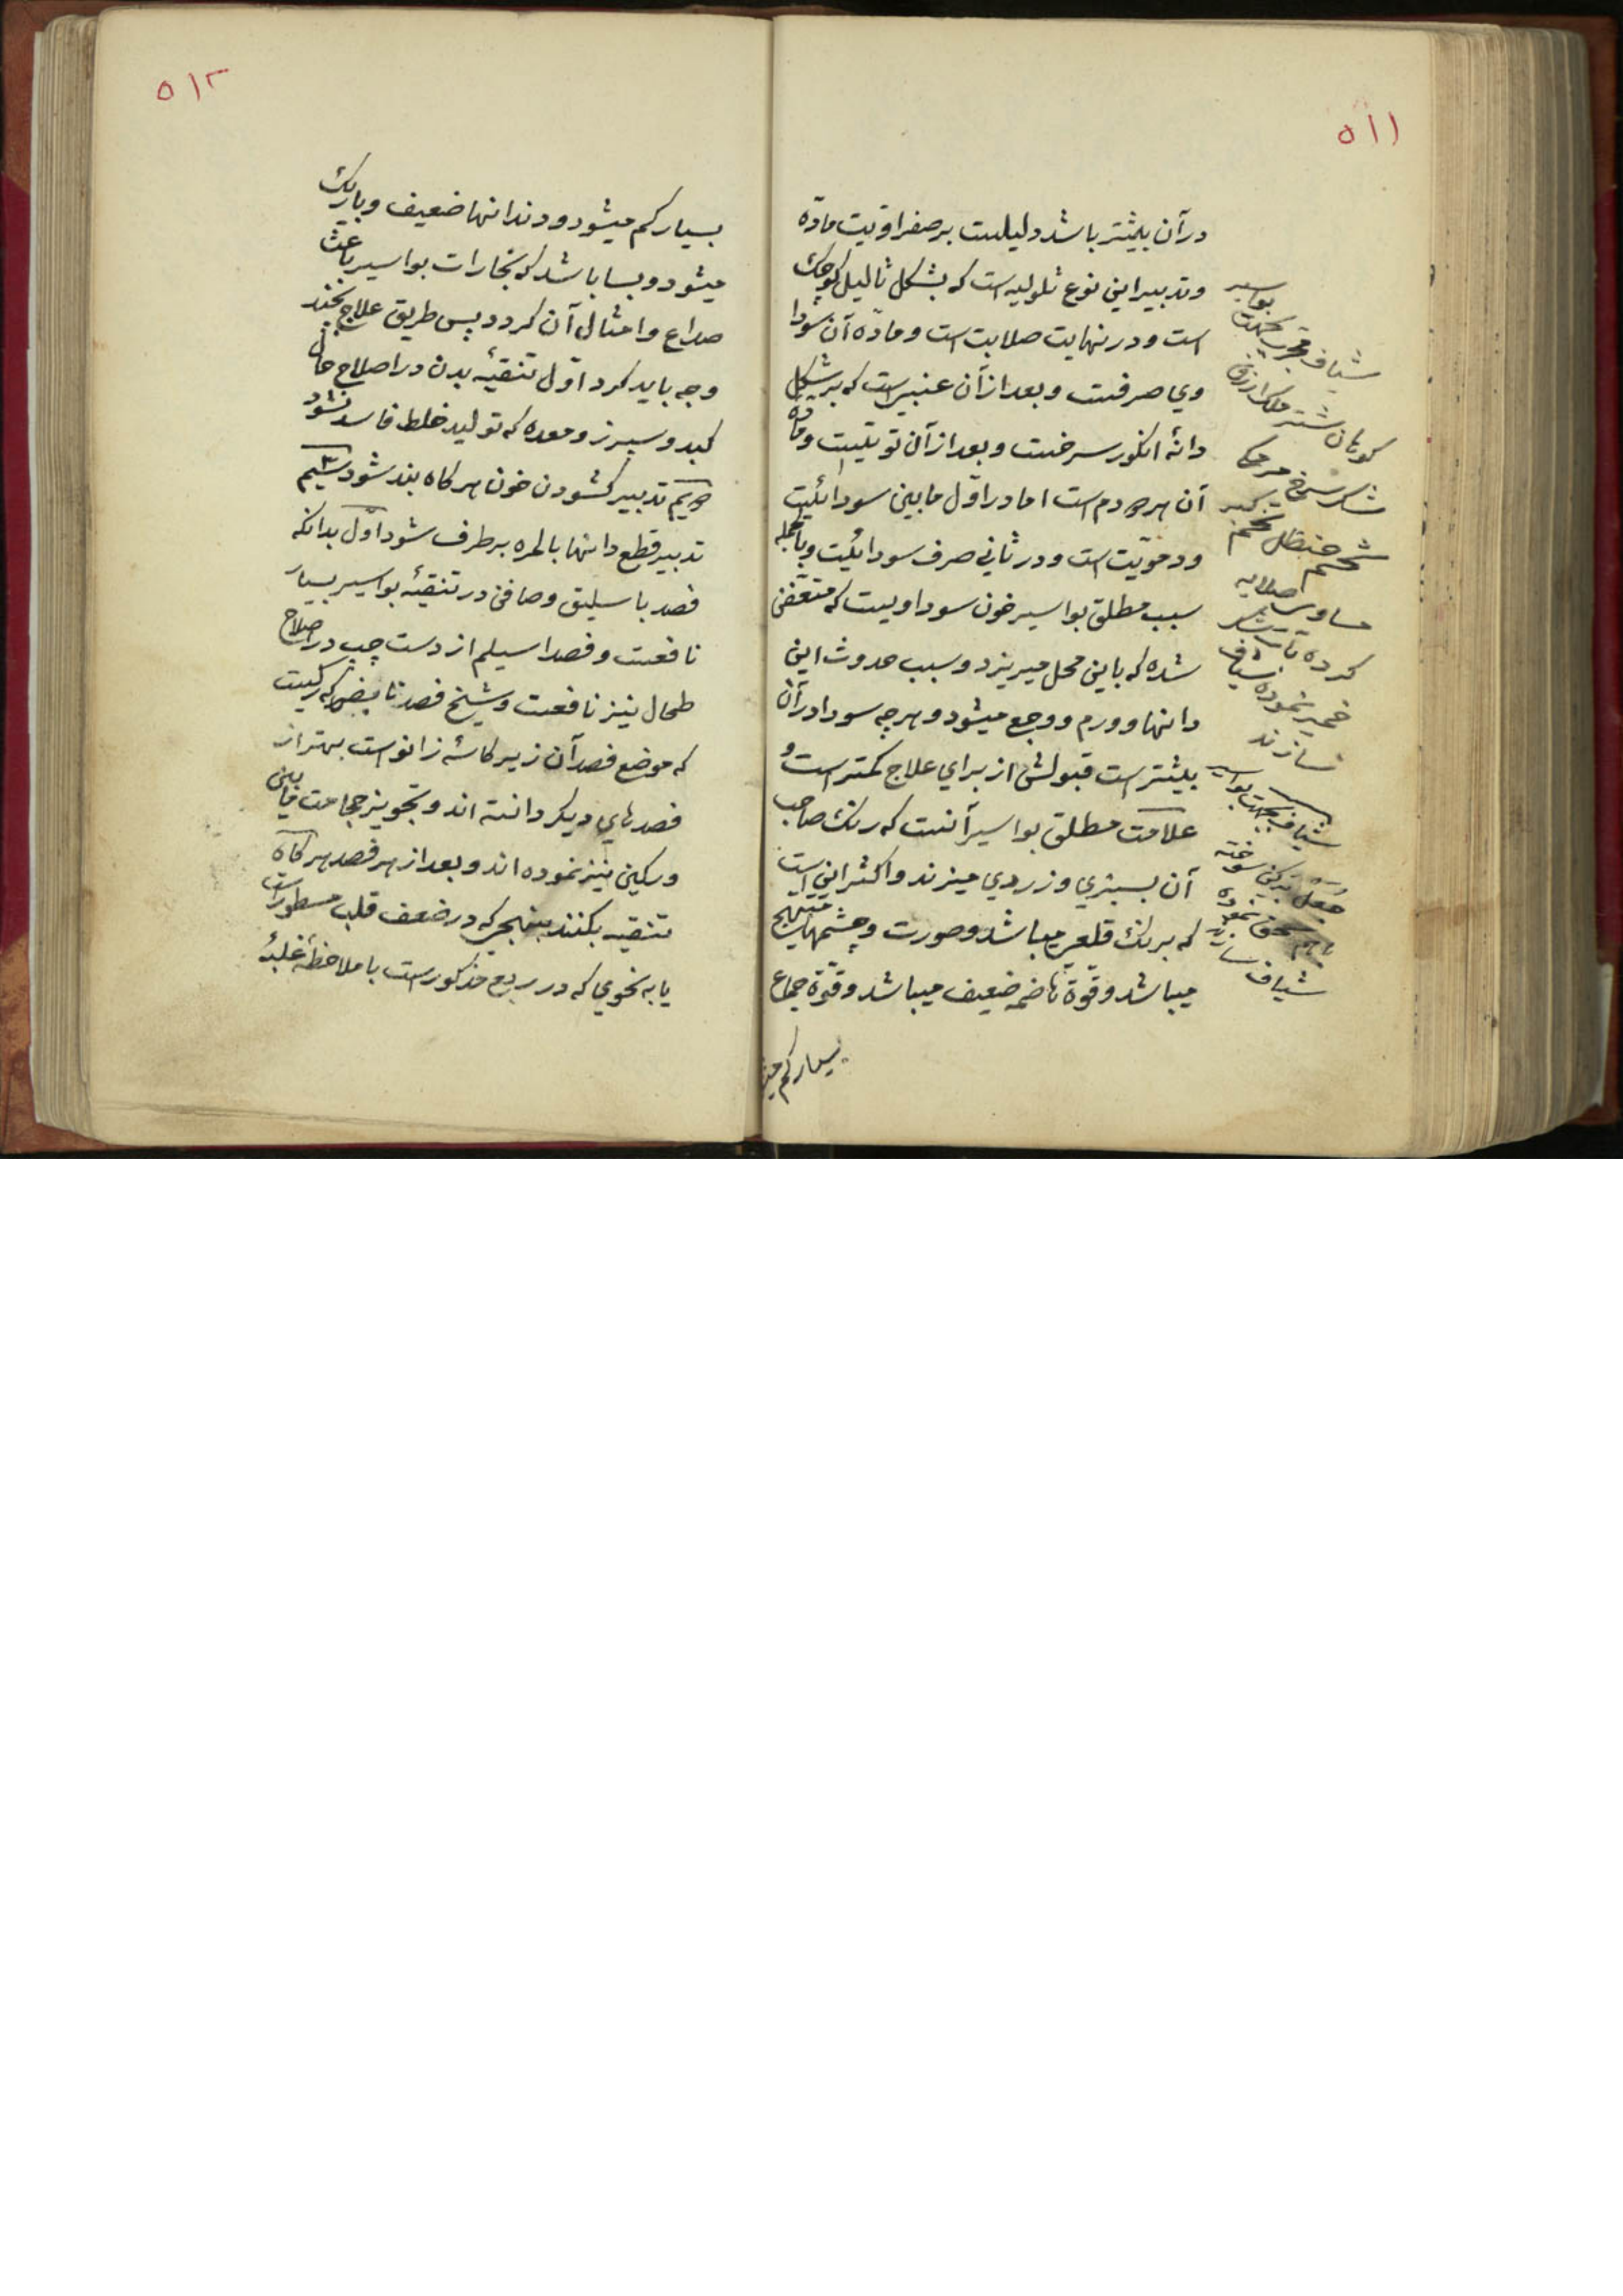 ٥١١
در آن بیشتر باشد دلیلست بر صفراویت مادّه
و تدبیر این نوع ثلولیه است که بشکل ثالیل کوچک
است و در نهایت صلابت است و مادّه آن سودا
وی صرفست و بعد از آن عنبیه است که بر شکل
دانهٔ انکور سرخست و بعد از آن توتیست و مادّه
آن هر دو دم است اما در اوّل مابین سودائیت
و دمویّت است و در ثانی صرف سودائیت و بالجمله
سبب مطلق بواسیر خون سوداویست که متعفن
شده که باین محل میریزد و سبب حدوث این
دانها و ورم و وجع میشود و هر چه سودا در آن
بیشتر است قبولش از برای علاج کمتر است و
علامت مطلق بواسیر آنست که رنک صاحب
آن بسبزی و زردی میزند و اکثر این است
که برنک قلعی میباشد و صورت و چشمهایش متهیج
میباشد و قوّة هاضمه ضعیف میباشد و قوّة جماع
بسیار کم میشو
شیاف مجرب بجهت بواسیر
کوهان شتر مقل ازرق
شکر سرخ مر مکی
شحم حنظل تخم کبر
مساوی صلایه
کرده بآب
خمیر نموده شیاف
سازند
شیاف بجهت بواسیر
سوخته
شیاف سازند
٥١٢
بسیار کم میشود و دندانها ضعیف و باریک
میشود و بسا باشد که بخارات بواسیر باعث
صداع و امثال آن کردد پس طریق علاج بچند
وجه باید کرد اوّل تنقیهٔ بدن در اصلاح حال
کبد و سپرز و معده که تولید خلط فاسد نشود
دویّم تدبیر کشودن خون هر کاه بند شود سیّم
تدبیر قطع دانها بالمره برطرف شود اوّل بدانکه
فصد باسلیق و صافن در تنقیهٔ بواسیر بسیار
نافعست و فصد اسیلم از دست چپ در اصلاح
طحال نیز نافعست و شیخ فصد مابض که رکیست
که موضع فصد آن زیر کاسهٔ زانو است بهتر از
فصدهای دیکر دانسته اند و تجویز حجامت مابین
ورکین نیز نموده اند و بعد از هر فصد هر کاه
تنقیه بکنند بنهجی که در ضعف قلب مسطور است
یا به نحوی که در ربع مذکور است با ملاحظهٔ غلبهٔ